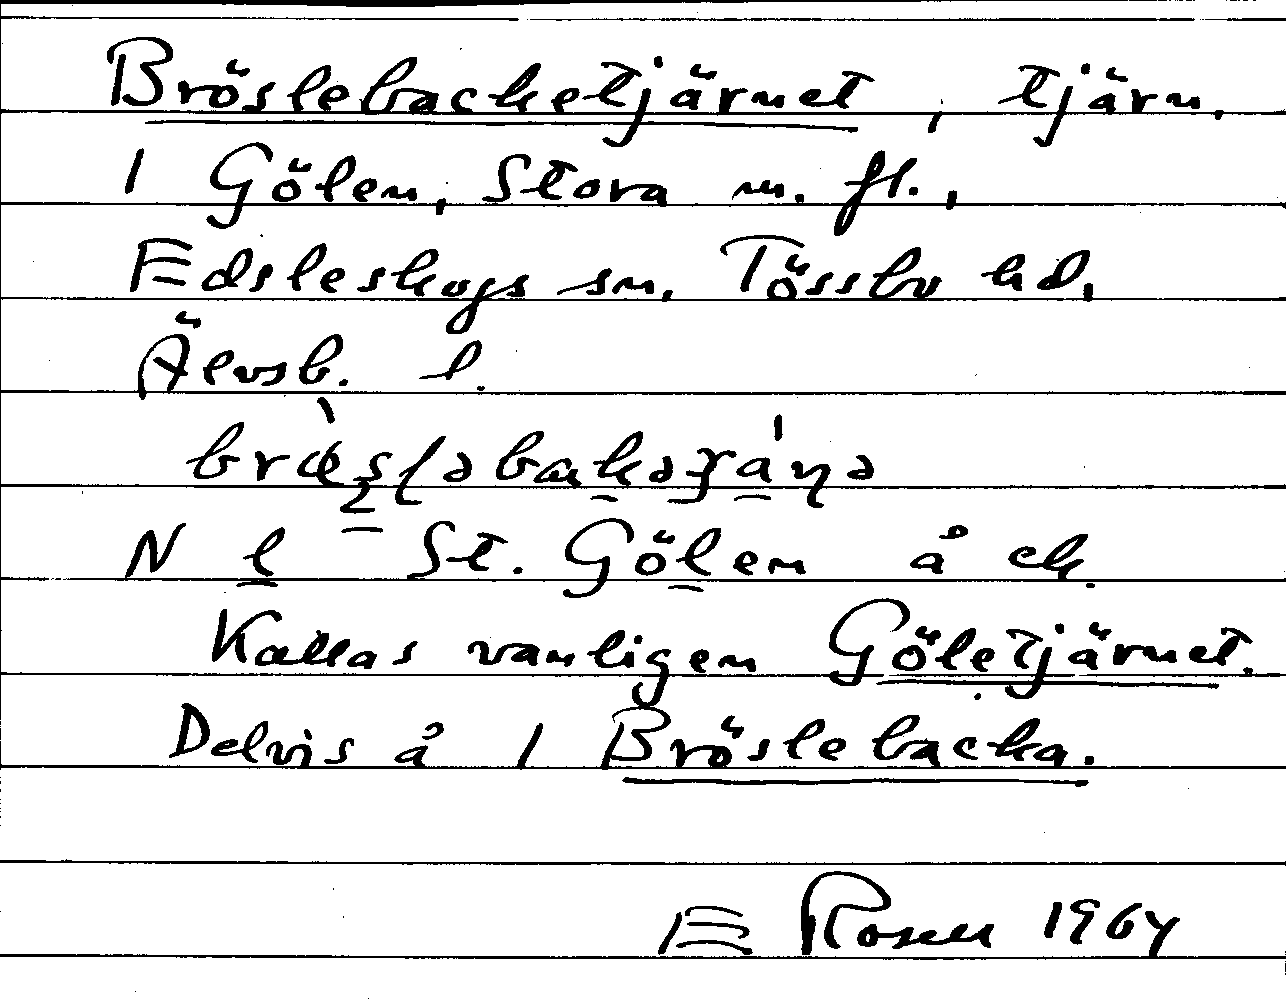 Bröslebacketjärnet, tjärn.
1 Gölen, Stora m. fl.,
Edsleskogs sn. Tössbo hd.
Älvsb. l.
N l St. Gölen å ek.
Kallas vanligen Göletjärnet.
Delvis å 1 Bröslebacka.
E Rosell 1964